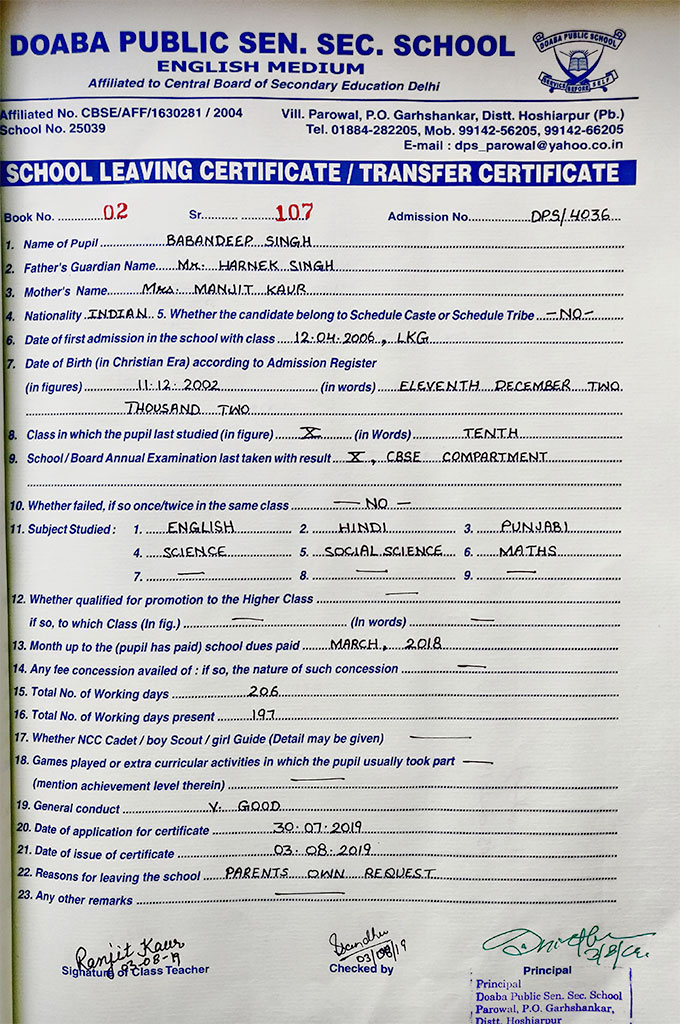 DOABA PUBLIC SEN. SEC. SCHOOL
ENGLISH MEDIUM
Affiliated to Central Board of Secondary Education Delhi
DOABA PUBLIC SCHOOL
SERVICE BEFORE SELF
Affiliated No. CBSE/AFF/1630281 / 2004 Vill. Parowal, P.O. Garhshankar, Distt. Hoshiarpur (Pb.)
School No. 25039 Tel. 01884-282205, Mob. 99142-56205, 99142-66205
E-mail : dps_parowal@yahoo.co.in
SCHOOL LEAVING CERTIFICATE / TRANSFER CERTIFICATE
Book No. 02 Sr. 107 Admission No. DPS/4036
1. Name of Pupil BABANDEEP SINGH
2. Father's Guardian Name Mr. HARNEK SINGH
3. Mother's Name Mrs. MANJIT KAUR
4. Nationality INDIAN 5. Whether the candidate belong to Schedule Caste or Schedule Tribe —NO—
6. Date of first admission in the school with class 12.04.2006, LKG
7. Date of Birth (in Christian Era) according to Admission Register
(in figures) 11.12.2002 (in words) ELEVENTH DECEMBER TWO
THOUSAND TWO
8. Class in which the pupil last studied (in figure) X (in Words) TENTH
9. School / Board Annual Examination last taken with result X, CBSE COMPARTMENT
10. Whether failed, if so once/twice in the same class — NO —
11. Subject Studied : 1. ENGLISH 2. HINDI 3. PUNJABI
4. SCIENCE 5. SOCIAL SCIENCE 6. MATHS
7. — 8. — 9. —
12. Whether qualified for promotion to the Higher Class —
if so, to which Class (In fig.) — (In words) —
13. Month up to the (pupil has paid) school dues paid MARCH, 2018
14. Any fee concession availed of : if so, the nature of such concession —
15. Total No. of Working days 206
16. Total No. of Working days present 197
17. Whether NCC Cadet / boy Scout / girl Guide (Detail may be given) —
18. Games played or extra curricular activities in which the pupil usually took part —
(mention achievement level therein) —
19. General conduct V. GOOD
20. Date of application for certificate 30.07.2019
21. Date of issue of certificate 03.08.2019
22. Reasons for leaving the school PARENTS OWN REQUEST
23. Any other remarks —
Ranjit Kaur
03-08-19 03/08/19
Signature of Class Teacher Checked by Principal
Principal
Doaba Public Sen. Sec. School
Parowal, P.O. Garhshankar,
Distt. Hoshiarpur